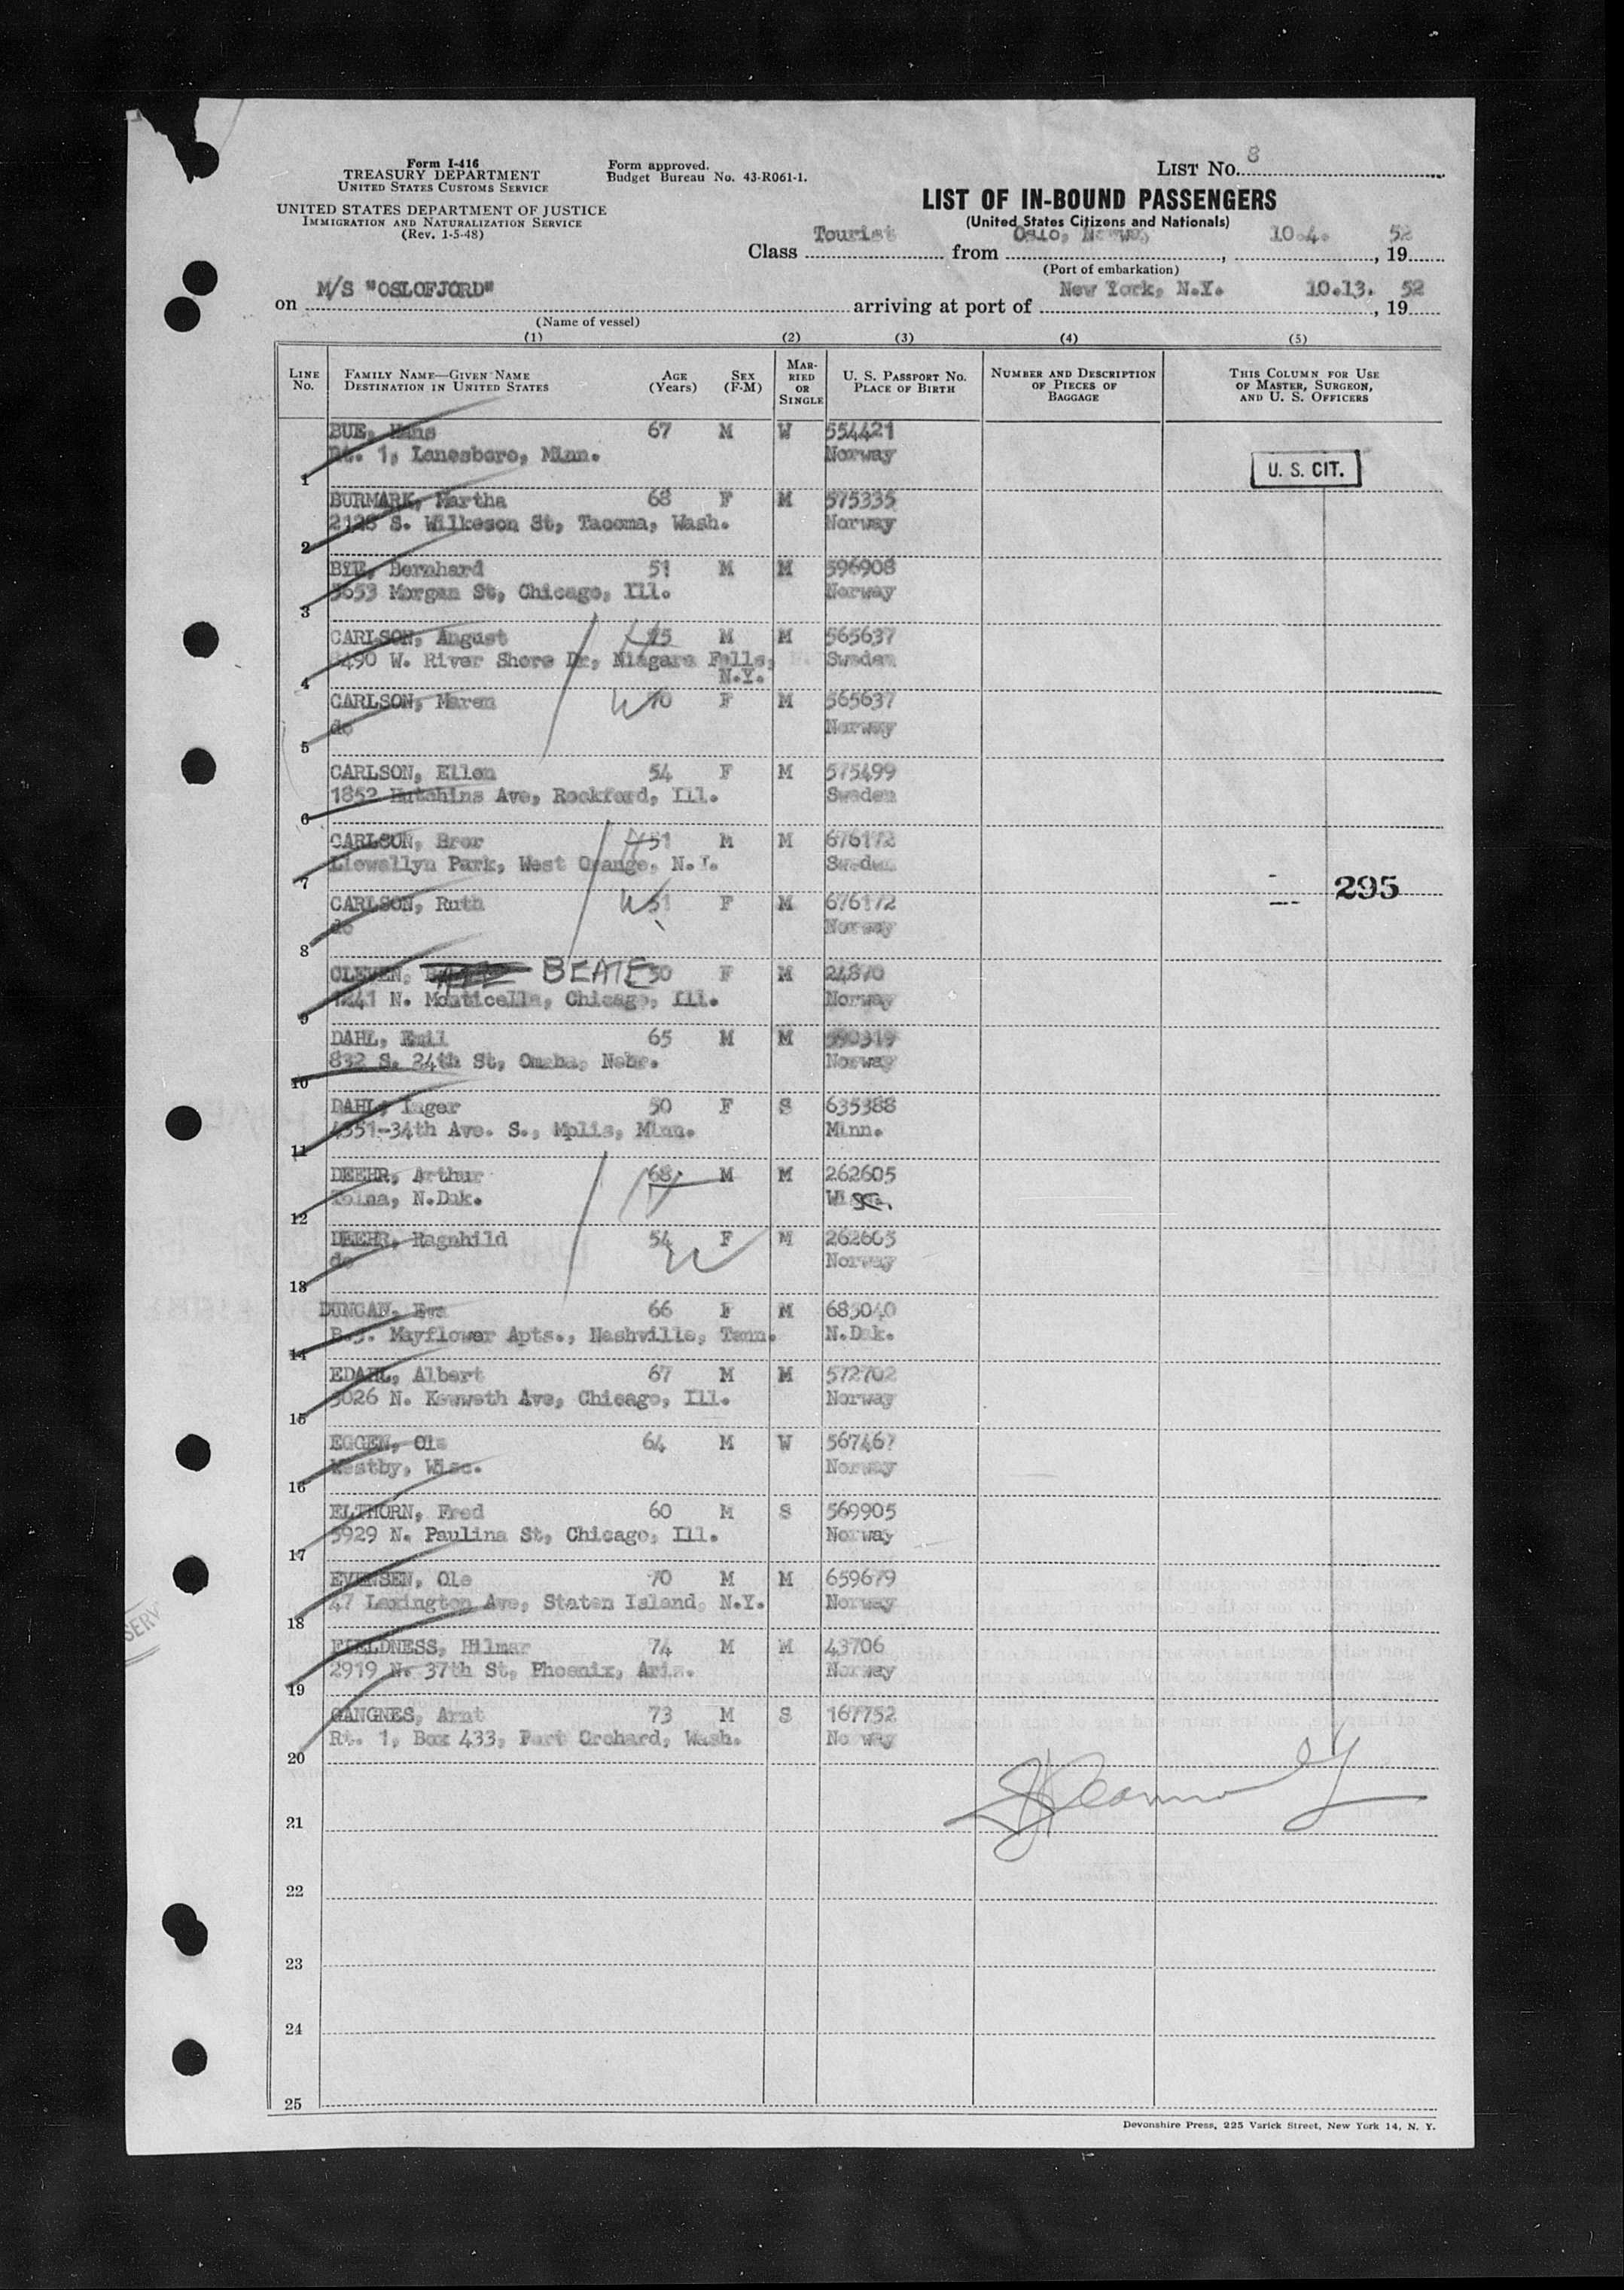 Form I-416
TREASURY DEPARTMENT
UNITED STATES CUSTOMS SERVICE
UNITED STATES DEPARTMENT OF JUSTICE
IMMIGRATION AND NATURALIZATION SERVICE
(Rev. 1-5-48)
Form approved.
Budget Bureau No. 43-R061-1.
LIST NO. 8
LIST OF IN-BOUND PASSENGERS
(United States Citizens and Nationals)
Class Tourist from Oslo, Norway, 10.4., 1952
(Port of embarkation)
on M/S "OSLOFJORD" arriving at port of New York, N.Y. 10.13., 1952
(Name of vessel)
(1) (2) (3) (4) (5)
LINE NO. FAMILY NAME—GIVEN NAME DESTINATION IN UNITED STATES AGE (Years) SEX (F-M) MARRIED OR SINGLE U. S. PASSPORT NO. PLACE OF BIRTH NUMBER AND DESCRIPTION OF PIECES OF BAGGAGE THIS COLUMN FOR USE OF MASTER, SURGEON, AND U. S. OFFICERS
BUE, Hans 67 M W 554421
1 Rt. 1, Lanesboro, Minn. Norway U. S. CIT.
BURMARK, Martha 68 F M 575335
2 2128 S. Wilkeson St, Tacoma, Wash. Norway
BYE, Bernhard 51 M M 596908
3 5653 Morgan St, Chicago, Ill. Norway
CARLSON, August 75 M M 565637
4 8490 W. River Shore Dr, Niagara Falls, N.Y. Sweden
CARLSON, Maren 70 F M 565637
5 do Norway
CARLSON, Ellen 54 F M 575499
6 1852 Hutchins Ave, Rockford, Ill. Sweden
CARLSON, Bror 51 M M 676172
7 Llewallyn Park, West Orange, N.J. Sweden
295
CARLSON, Ruth W 51 F M 676172
8 do Norway
CLEVEN, BEATE 50 F M 24870
9 1241 N. Monticello, Chicago, Ill. Norway
DAHL, Emil 65 M M 590319
10 832 S. 24th St, Omaha, Nebr. Norway
DAHL, Inger 50 F S 635388
11 4351-34th Ave. S., Mplis, Minn. Minn.
DEEHR, Arthur 68 M M 262605
12 Tolna, N.Dak. Wisc.
DEEHR, Ragnhild 54 F M 262605
13 do W Norway
DUNCAN, Eva 66 F M 685040
14 B.J. Mayflower Apts., Nashville, Tenn. N.Dak.
EDAHL, Albert 67 M M 572702
15 3026 N. Kenweth Ave, Chicago, Ill. Norway
EGGEN, Ole 64 M W 567467
16 Westby, Wisc. Norway
ELTHORN, Fred 60 M S 569905
17 5929 N. Paulina St, Chicago, Ill. Norway
EVENSEN, Ole 70 M M 659679
18 47 Lexington Ave, Staten Island, N.Y. Norway
FJELDNESS, Hilmar 74 M M 43706
19 2919 N. 37th St, Phoenix, Ariz. Norway
GANGNES, Arnt 73 M S 167752
20 Rt. 1, Box 433, Port Orchard, Wash. Norway
21
22
23
24
25
Devonshire Press, 225 Varick Street, New York 14, N. Y.